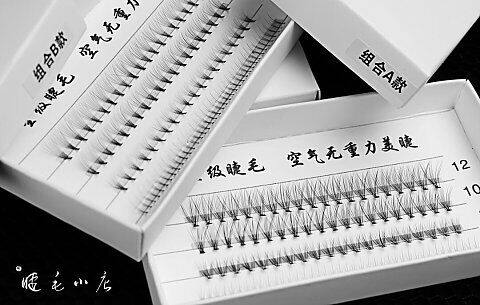 组合B款
级睫毛 空气无重力
组合A款
级睫毛 空气无重力美睫
12
10
睫毛小店